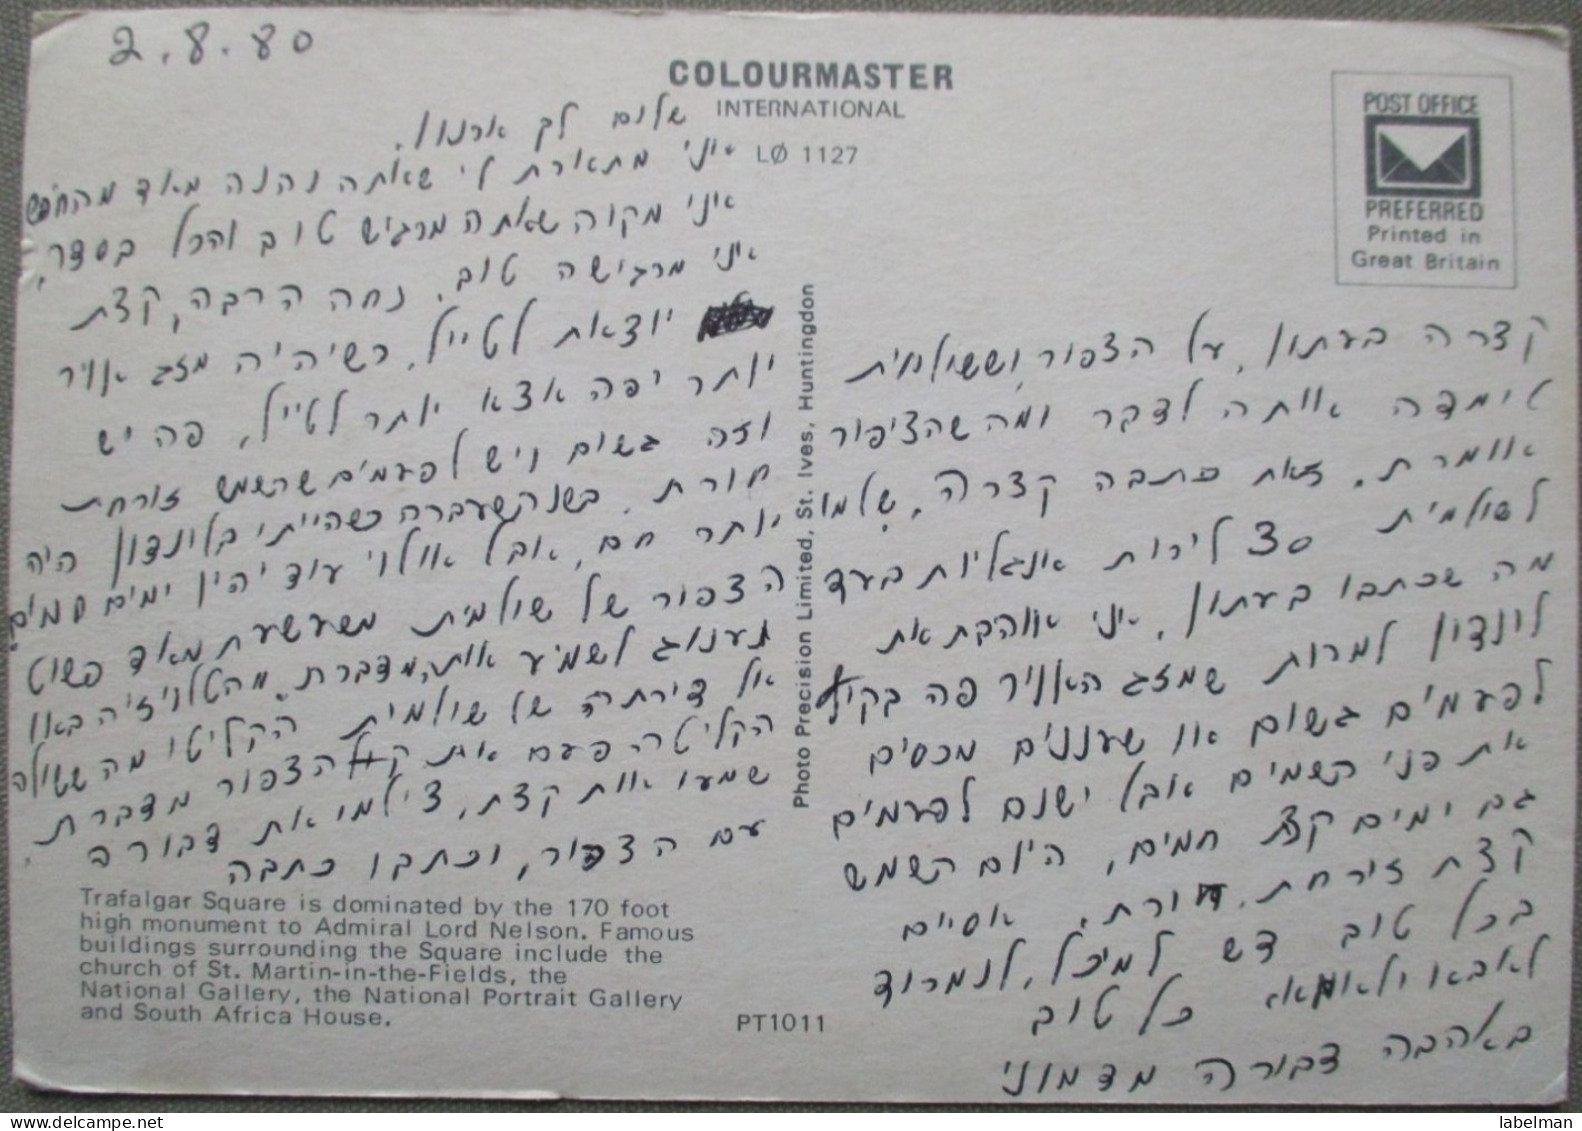 2.8.80
COLOURMASTER
INTERNATIONAL
LØ 1127
POST OFFICE
PREFERRED
Printed in
Great Britain
שלום לך ארנון.
איני מתארת לי שאתה נהנה מאד מהחופש
איני מקוה שאתה מרגיש טוב והכל בסדר,
איני מרגישה טוב, נחה הרבה, קצת
יוצאת לטייל, כשיהיה מזג אויר
יותר יפה אצא יותר לטייל, פה יש
וזה גשום ויש לפעמים שהשמש זורחת
חורת. בשנה שעברה כשהייתי בלונדון היה
יותר חם, אבל אולי עוד יהיו ימים חמים
הצפור של שולמית משעשעת מאד פשוט
תענוג לשמיע אותה מדברת, מהטלויזיה באו
אל דירתה של שולמית הקליטו מה ששולה
הקליטה פעם את הצפור מדברת,
שמעו אות קצת, צילמו את דבורה
עם הצפור, וכתבו כתבה
קצרה בעתון, על הצפור, וששולמית
לימדה אותה לדבר ומה שהציפור
אומרת, זאת כתבה קצרה, שלמו
לשולמית 30 לירות אנגליות בעד
מה שכתבו בעתון, איני אוהבת את
לונדון למרות שמזג האויר פה בקיץ
לפעמים גשום או שעננים מכסים
את פני השמים אבל ישנם לפעמים
גם ימים קצת חמים, היום השמש
קצת זורחת, אסיים
בכל טוב דש למיכל, לנמרוד
לאבא ולאמא, כל טוב
באהבה דבורה מדמוני
Trafalgar Square is dominated by the 170 foot
high monument to Admiral Lord Nelson. Famous
buildings surrounding the Square include the
church of St. Martin-in-the-Fields, the
National Gallery, the National Portrait Gallery
and South Africa House.
PT1011
Photo Precision Limited, St. Ives, Huntingdon
labelman